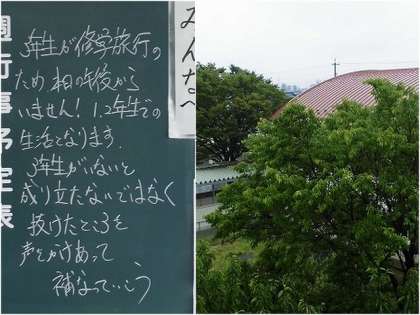 みんなへ
週行事予定表
3年生が修学旅行の
ため 木日の午後から
いません! 1.2年生での
生活となります.
3年生がいないと
成り立たないではなく
抜けたところを
声をかけあって
補なっていこう